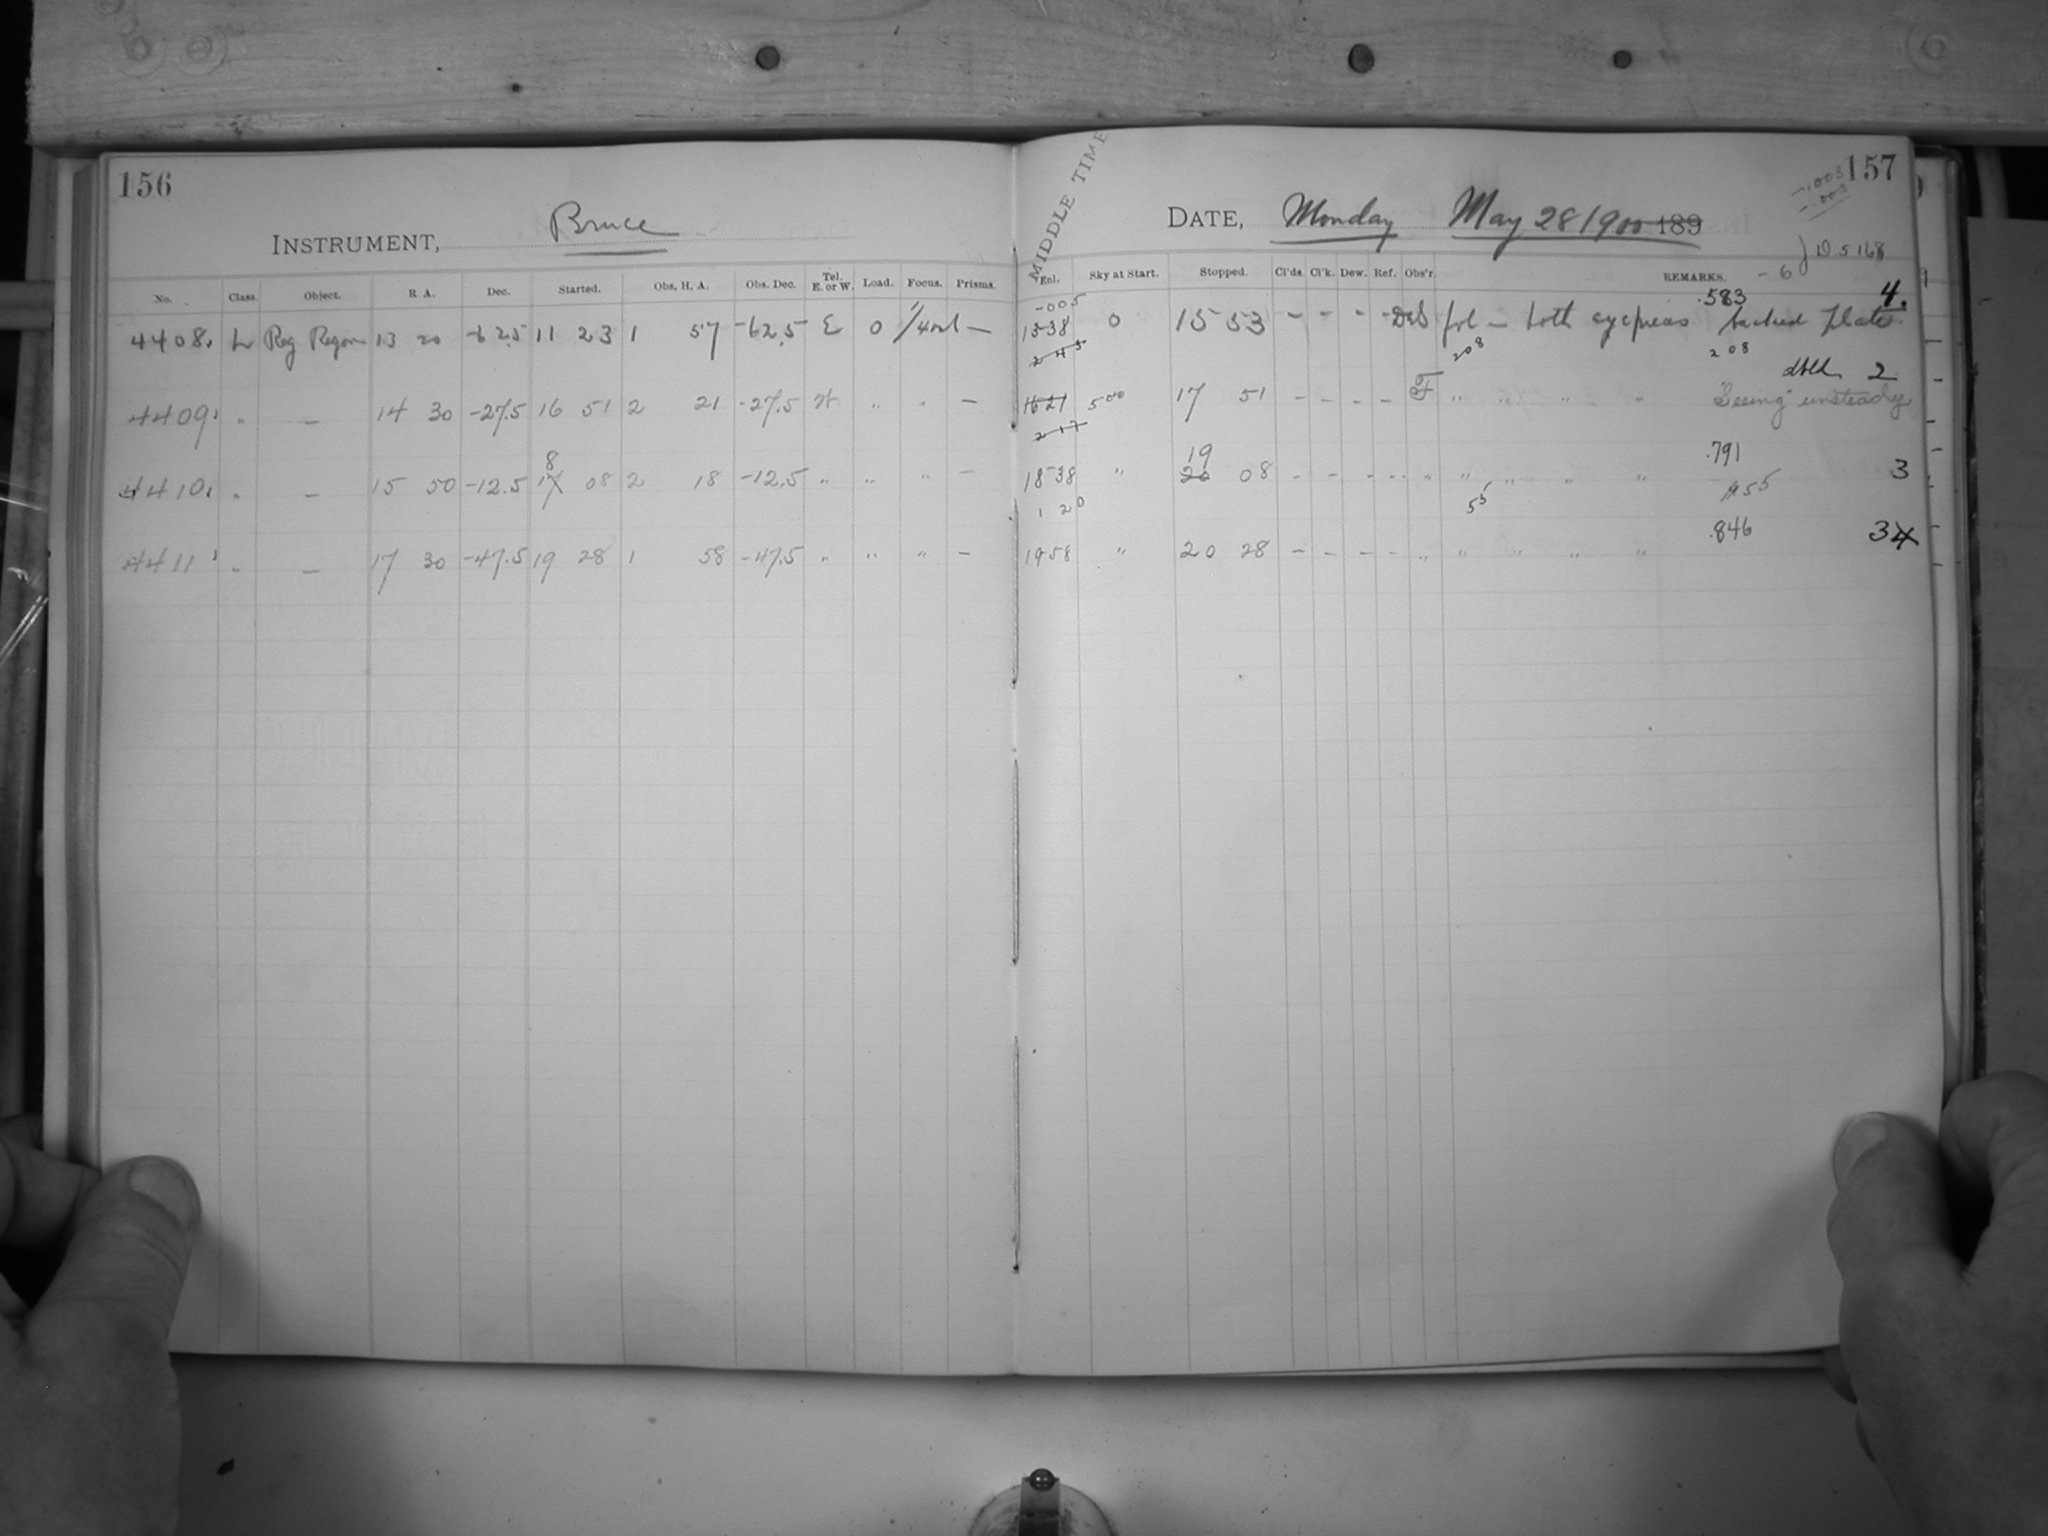 156
INSTRUMENT, Bruce
No. Class. Object. R. A. Dec. Started. Obs. H. A. Obs. Dec. Tel. E. or W. Load. Focus. Prisms.
4408. L Reg Region 13 20 -62.5 11 23 1 57 -62.5 E 0 —
4409. " — 14 30 -27.5 16 51 2 21 -27.5 W " " —
8
4410. " — 15 50 -12.5 17 08 2 18 -12.5 " " " —
4411 " — 17 30 -47.5 19 28 1 58 -47.5 " " " —
157
-.003
-.003
MIDDLE TIME
DATE, Monday May 28 1900 189
J D 5168
Enl. Sky at Start. Stopped. Cl'ds. Cl'k. Dew. Ref. Obs'r. REMARKS. -6
-005 .583 4.
1538 0 15 53 - - - - fol — both eyepieces backed plate
243 208 208
dbld. 2
1621 500 17 51 - - - - F " " " " "Seeing" unsteady
217
19 .791
1838 " 20 08 - - - - " " " " " 3
1 20 55 55
.846 34
1958 " 20 28 - - - - " " " " "